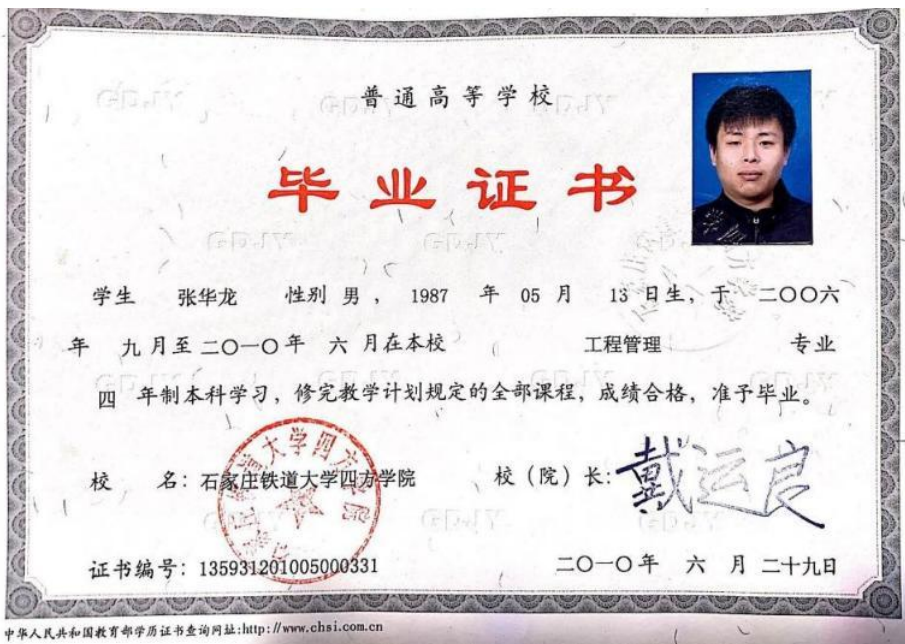 普通高等学校
毕业证书
学生 张华龙 性别 男 , 1987 年 05 月 13 日生, 于 二〇〇六
年 九 月至 二〇一〇 年 六 月在本校 工程管理 专业
四 年制本科学习, 修完教学计划规定的全部课程, 成绩合格, 准予毕业。
校 名: 石家庄铁道大学四方学院 校 (院) 长: 戴运良
证书编号: 135931201005000331 二〇一〇 年 六 月 二十九日
中华人民共和国教育部学历证书查询网址:http://www.chsi.com.cn